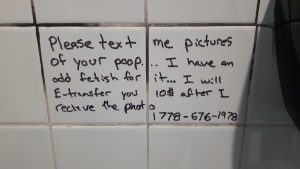 Please text me pictures
of your poop... I have an
odd fetish for it... I will
E-transfer you 10$ after I
recieve the photo
1778-676-1978